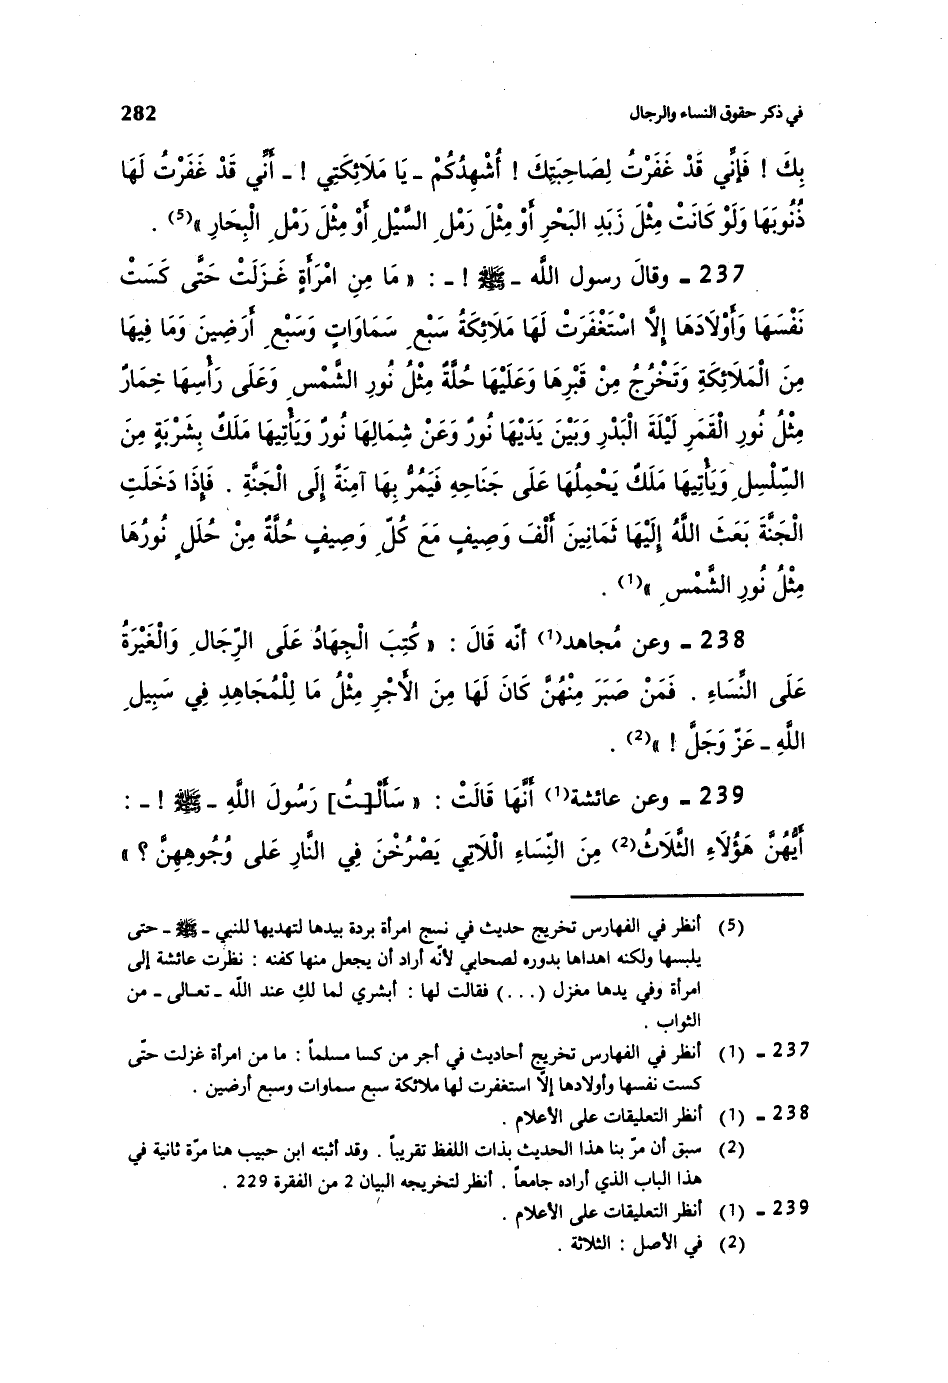 في ذكر حقوق النساء والرجال 282
بِكَ ! فَإِنِّي قَدْ غَفَرْتُ لِصَاحِبَتِكَ ! أُشْهِدُكُمْ ـ يَا مَلَائِكَتِي ! ـ أَنِّي قَدْ غَفَرْتُ لَهَا
ذُنُوبَهَا وَلَوْ كَانَتْ مِثْلَ زَبَدِ البَحْرِ أَوْ مِثْلَ رَمْلِ السَّيْلِ أَوْ مِثْلَ رَمْلِ الْبِحَارِ »(5) .
237 ـ وقالَ رسول اللَّه ـ ﷺ ! ـ : « مَا مِنِ امْرَأَةٍ غَـزَلَتْ حَتَّى كَسَتْ
نَفْسَهَا وَأَوْلَادَهَا إِلَّا اسْتَغْفَرَتْ لَهَا مَلَائِكَةُ سَبْعِ سَمَاوَاتٍ وَسَبْعِ أَرَضِينَ وَمَا فِيهَا
مِنَ الْمَلَائِكَةِ وَتَخْرُجُ مِنْ قَبْرِهَا وَعَلَيْهَا حُلَّةٌ مِثْلُ نُورِ الشَّمْسِ وَعَلَى رَأْسِهَا خِمَارٌ
مِثْلُ نُورِ الْقَمَرِ لَيْلَةَ الْبَدْرِ وَبَيْنَ يَدَيْهَا نُورٌ وَعَنْ شِمَالِهَا نُورٌ وَيَأْتِيهَا مَلَكٌ بِشَرْبَةٍ مِنَ
السِّلْسِلِ وَيَأْتِيهَا مَلَكٌ يَحْمِلُهَا عَلَى جَنَاحِهِ فَيَمُرُّ بِهَا آمِنَةً إِلَى الْجَنَّةِ . فَإِذَا دَخَلَتِ
الْجَنَّةَ بَعَثَ اللَّهُ إِلَيْهَا ثَمَانِينَ أَلْفَ وَصِيفٍ مَعَ كُلِّ وَصِيفٍ حُلَّةٌ مِنْ حُلَلٍ نُورُهَا
مِثْلُ نُورِ الشَّمْسِ »(1) .
238 ـ وعن مُجاهد(1) أنّه قَالَ : « كُتِبَ الْجِهَادُ عَلَى الرِّجَالِ وَالْغَيْرَةُ
عَلَى النِّسَاءِ . فَمَنْ صَبَرَ مِنْهُنَّ كَانَ لَهَا مِنَ الْأَجْرِ مِثْلُ مَا لِلْمُجَاهِدِ فِي سَبِيلِ
اللَّهِ ـ عَزَّ وَجَلَّ ! »(2) .
239 ـ وعن عائشة(1) أَنَّهَا قَالَتْ : « سَأَلْـ[ـتُ] رَسُولَ اللَّهِ ـ ﷺ ! ـ :
أَيُّهُنَّ هَؤُلَاءِ الثَّلَاثُ(2) مِنَ النِّسَاءِ الْلَاتِي يَصْرُخْنَ فِي النَّارِ عَلى وُجُوهِهِنَّ ؟ »
(5) أنظر في الفهارس تخريج حديث في نسج امرأة بردة بيدها لتهديها للنبي ـ ﷺ ـ حتى
يلبسها ولكنه اهداها بدوره لصحابي لأنّه أراد أن يجعل منها كفنه : نظرت عائشة إلى
امرأة وفي يدها مغزل (...) فقالت لها : أبشري لما لكِ عند اللّه ـ تعـالى ـ من
الثواب .
237 ـ (1) أنظر في الفهارس تخريج أحاديث في أجر من كسا مسلماً : ما من امرأة غزلت حتّى
كست نفسها وأولادها إلّا استغفرت لها ملائكة سبع سماوات وسبع أرضين .
238 ـ (1) أنظر التعليقات على الأعلام .
(2) سبق أن مرّ بنا هذا الحديث بذات اللفظ تقريباً . وقد أثبته ابن حبيب هنا مرّة ثانية في
هذا الباب الذي أراده جامعاً . أنظر لتخريجه البيان 2 من الفقرة 229 .
239 ـ (1) أنظر التعليقات على الأعلام .
(2) في الأصل : الثلاثة .